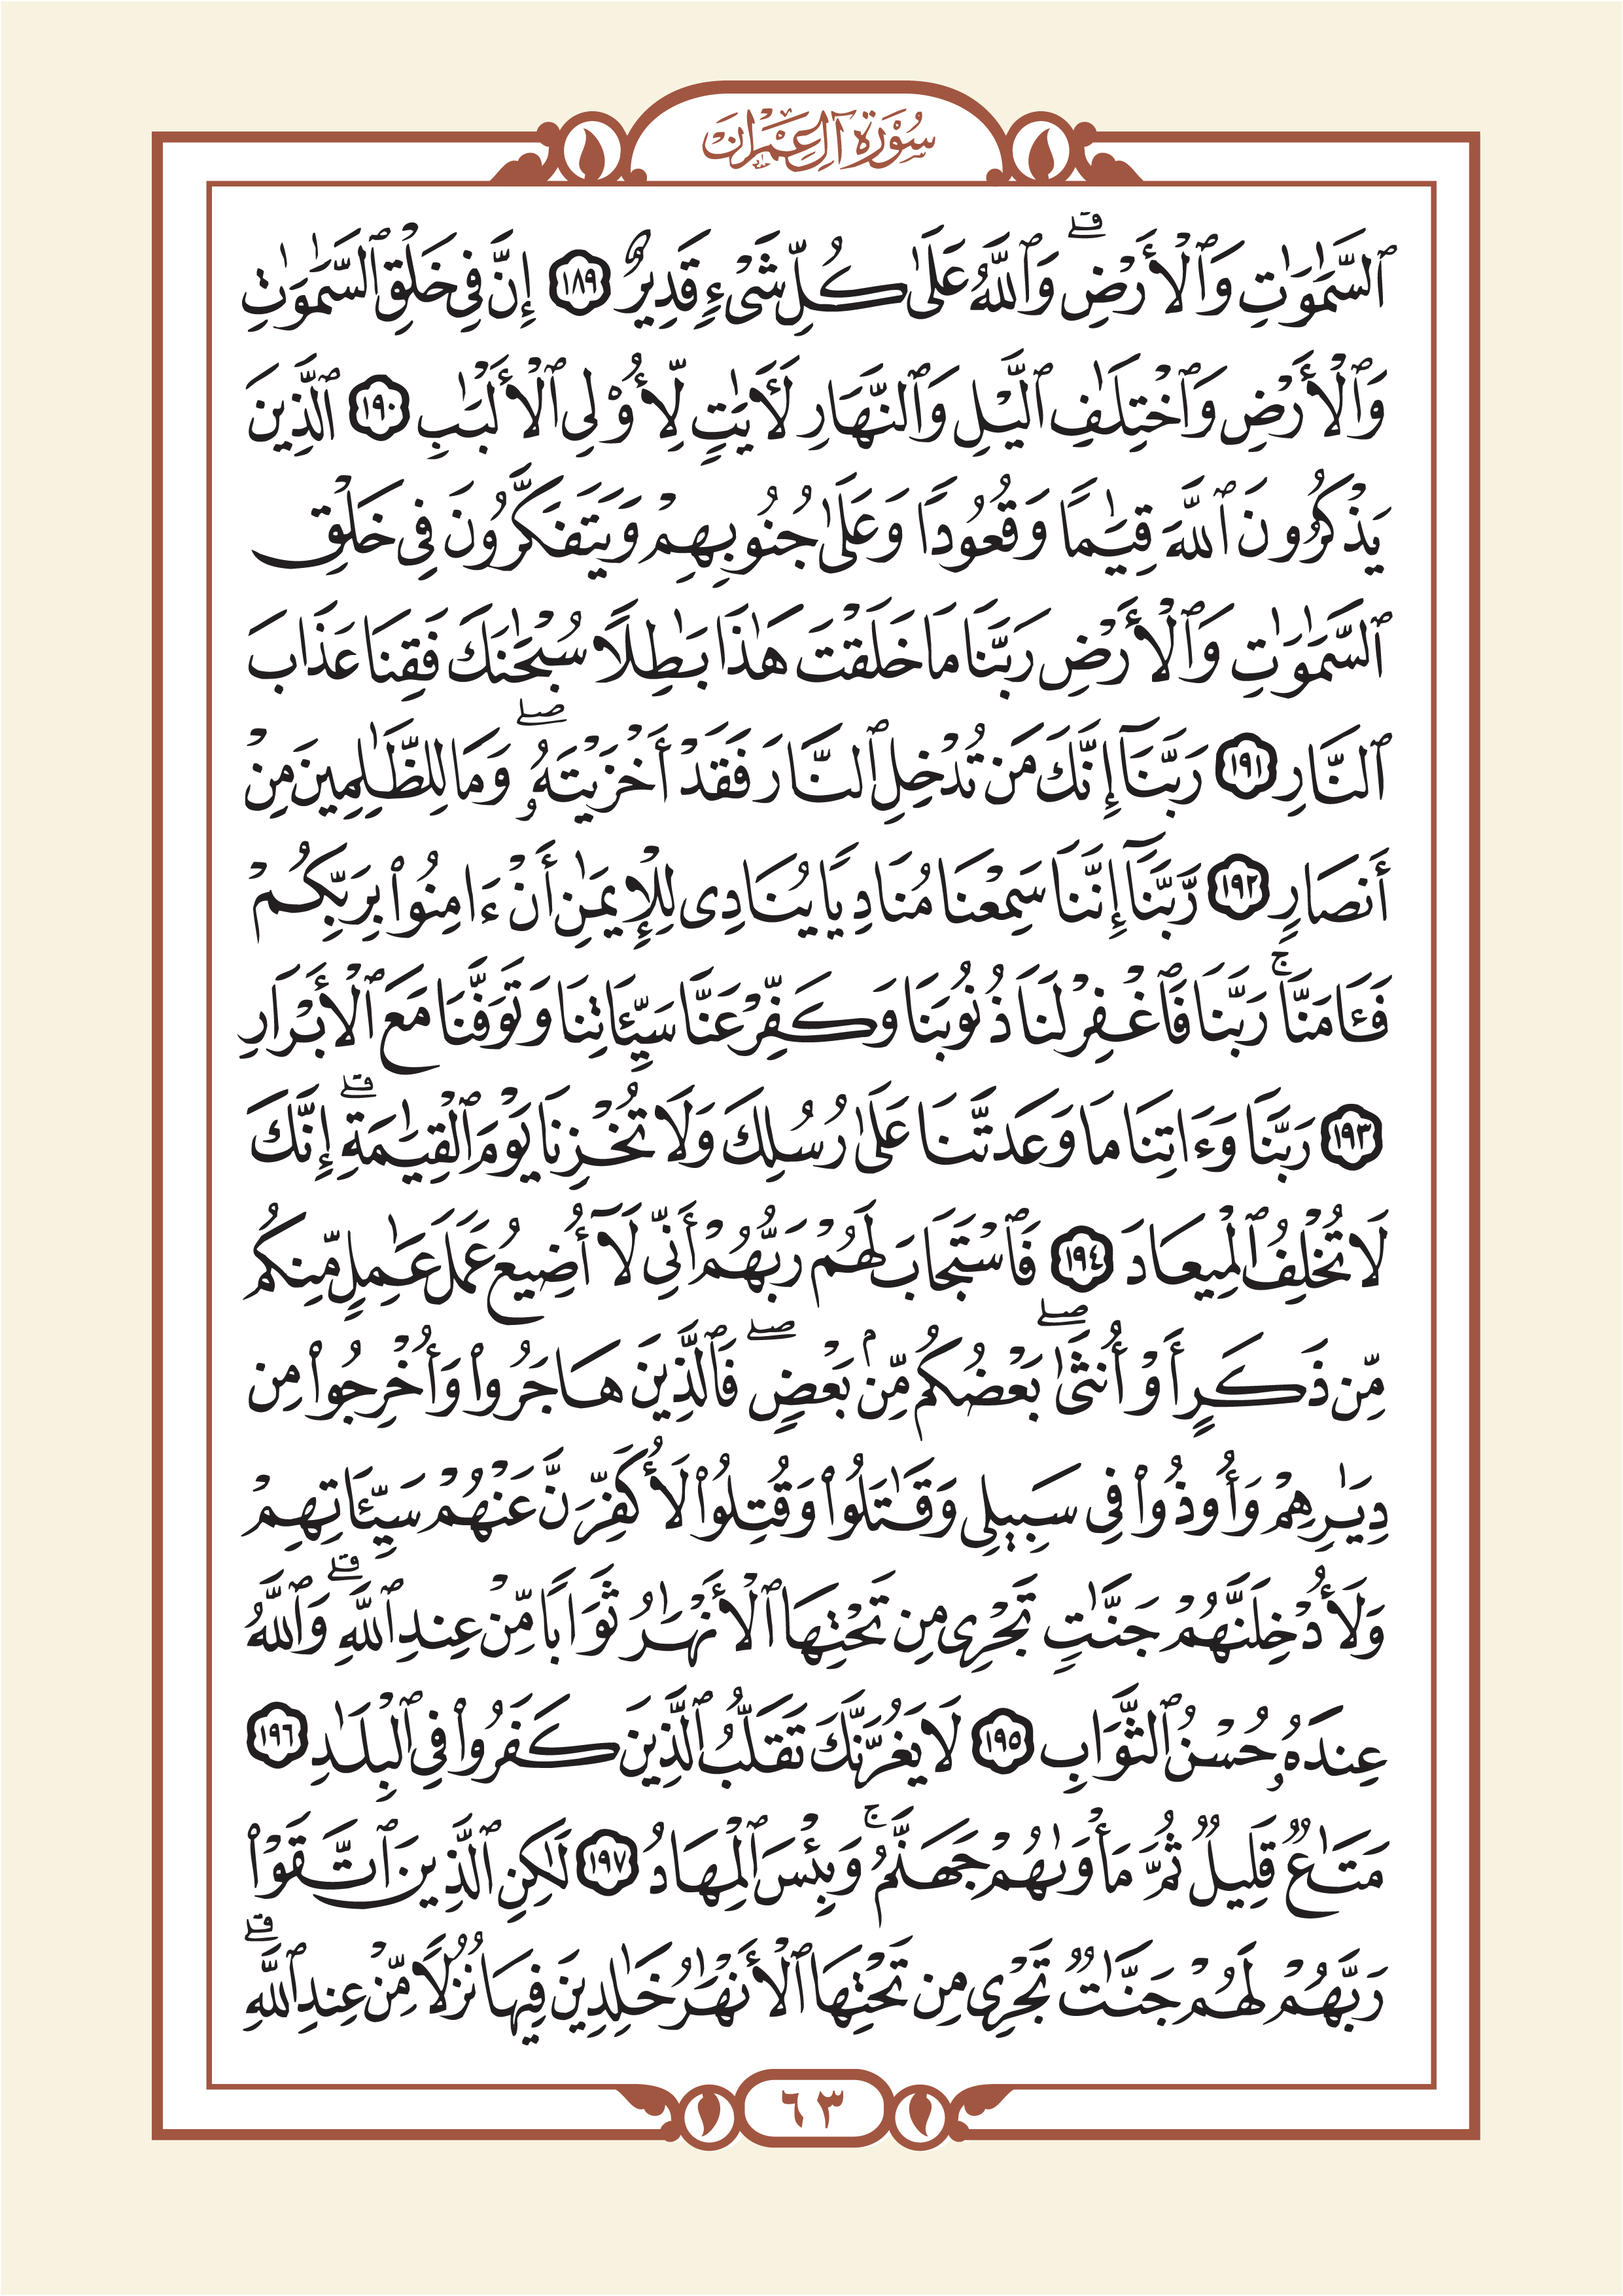 سُورَةُ آلِ عِمْرَانَ
ٱلسَّمَٰوَٰتِ وَٱلْأَرْضِ ۗ وَٱللَّهُ عَلَىٰ كُلِّ شَىْءٍ قَدِيرٌ ١٨٩ إِنَّ فِى خَلْقِ ٱلسَّمَٰوَٰتِ
وَٱلْأَرْضِ وَٱخْتِلَٰفِ ٱلَّيْلِ وَٱلنَّهَارِ لَأٓيَٰتٍ لِّأُو۟لِى ٱلْأَلْبَٰبِ ١٩٠ ٱلَّذِينَ
يَذْكُرُونَ ٱللَّهَ قِيَٰمًا وَقُعُودًا وَعَلَىٰ جُنُوبِهِمْ وَيَتَفَكَّرُونَ فِى خَلْقِ
ٱلسَّمَٰوَٰتِ وَٱلْأَرْضِ رَبَّنَا مَا خَلَقْتَ هَٰذَا بَٰطِلًا سُبْحَٰنَكَ فَقِنَا عَذَابَ
ٱلنَّارِ ١٩١ رَبَّنَآ إِنَّكَ مَن تُدْخِلِ ٱلنَّارَ فَقَدْ أَخْزَيْتَهُۥ ۖ وَمَا لِلظَّٰلِمِينَ مِنْ
أَنصَارٍ ١٩٢ رَّبَّنَآ إِنَّنَا سَمِعْنَا مُنَادِيًا يُنَادِى لِلْإِيمَٰنِ أَنْ ءَامِنُوا۟ بِرَبِّكُمْ
فَـَٔامَنَّا ۚ رَبَّنَا فَٱغْفِرْ لَنَا ذُنُوبَنَا وَكَفِّرْ عَنَّا سَيِّـَٔاتِنَا وَتَوَفَّنَا مَعَ ٱلْأَبْرَارِ
١٩٣ رَبَّنَا وَءَاتِنَا مَا وَعَدتَّنَا عَلَىٰ رُسُلِكَ وَلَا تُخْزِنَا يَوْمَ ٱلْقِيَٰمَةِ ۗ إِنَّكَ
لَا تُخْلِفُ ٱلْمِيعَادَ ١٩٤ فَٱسْتَجَابَ لَهُمْ رَبُّهُمْ أَنِّى لَآ أُضِيعُ عَمَلَ عَٰمِلٍ مِّنكُم
مِّن ذَكَرٍ أَوْ أُنثَىٰ ۖ بَعْضُكُم مِّنۢ بَعْضٍ ۖ فَٱلَّذِينَ هَاجَرُوا۟ وَأُخْرِجُوا۟ مِن
دِيَٰرِهِمْ وَأُوذُوا۟ فِى سَبِيلِى وَقَٰتَلُوا۟ وَقُتِلُوا۟ لَأُكَفِّرَنَّ عَنْهُمْ سَيِّـَٔاتِهِمْ
وَلَأُدْخِلَنَّهُمْ جَنَّٰتٍ تَجْرِى مِن تَحْتِهَا ٱلْأَنْهَٰرُ ثَوَابًا مِّنْ عِندِ ٱللَّهِ ۗ وَٱللَّهُ
عِندَهُۥ حُسْنُ ٱلثَّوَابِ ١٩٥ لَا يَغُرَّنَّكَ تَقَلُّبُ ٱلَّذِينَ كَفَرُوا۟ فِى ٱلْبِلَٰدِ ١٩٦
مَتَٰعٌ قَلِيلٌ ثُمَّ مَأْوَىٰهُمْ جَهَنَّمُ ۚ وَبِئْسَ ٱلْمِهَادُ ١٩٧ لَٰكِنِ ٱلَّذِينَ ٱتَّقَوْا۟
رَبَّهُمْ لَهُمْ جَنَّٰتٌ تَجْرِى مِن تَحْتِهَا ٱلْأَنْهَٰرُ خَٰلِدِينَ فِيهَا نُزُلًا مِّنْ عِندِ ٱللَّهِ ۗ
٦٣